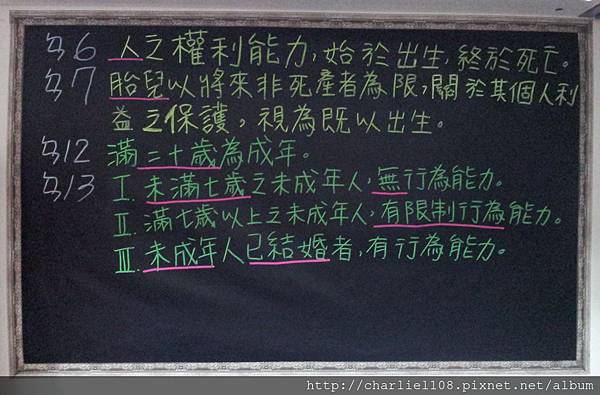 §6 人之權利能力,始於出生,終於死亡。
§7 胎兒以將來非死產者為限,關於其個人利
益之保護,視為既以出生。
§12 滿二十歲為成年。
§13 Ⅰ. 未滿七歲之未成年人,無行為能力。
Ⅱ. 滿七歲以上之未成年人,有限制行為能力。
Ⅲ. 未成年人已結婚者,有行為能力。
http://charlie1108.pixnet.net/album